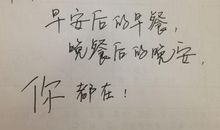 早安后的早餐，
晚餐后的晚安，
你都在！